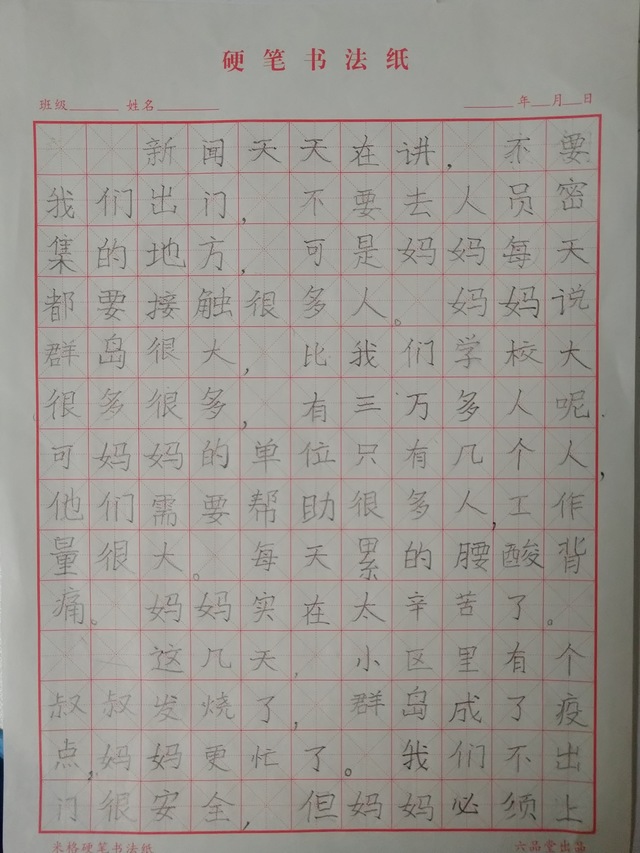 硬笔书法纸
班级 姓名 年 月 日
新闻天天在讲，不要
我们出门，不要去人员密
集的地方，可是妈妈每天
都要接触很多人。妈妈说
群岛很大，比我们学校大
很多很多，有三万多人呢.
可妈妈的单位只有几个人，
他们需要帮助很多人，工作
量很大。每天累的腰酸背
痛。妈妈实在太辛苦了。
这几天，小区里有个
叔叔发烧了，群岛成了疫
点，妈妈更忙了。我们不出
门很安全，但妈妈必须上
米格硬笔书法纸 六品堂出品